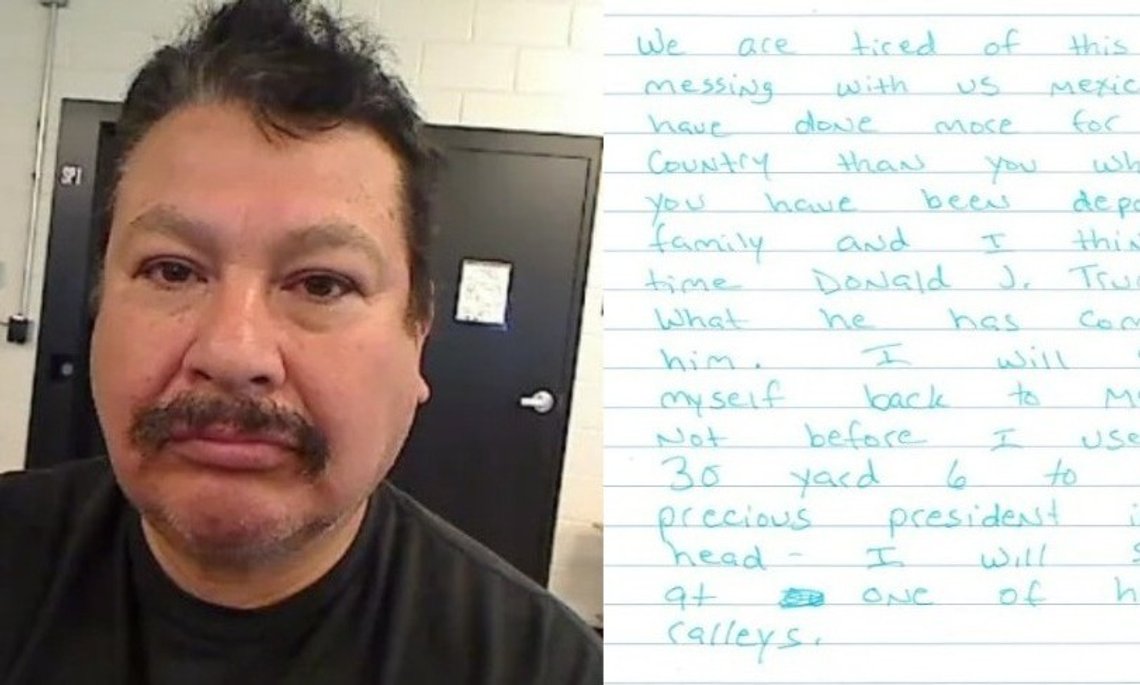 SPI
We are tired of this
messing with us Mexic
have done more for
Country than you wh
you have been depo
family and I thin
time Donald J. Tru
What he has com
him. I will
myself back to M
Not before I use
30 yard 6 to
precious president i
head - I will s
at one of h
ralleys.